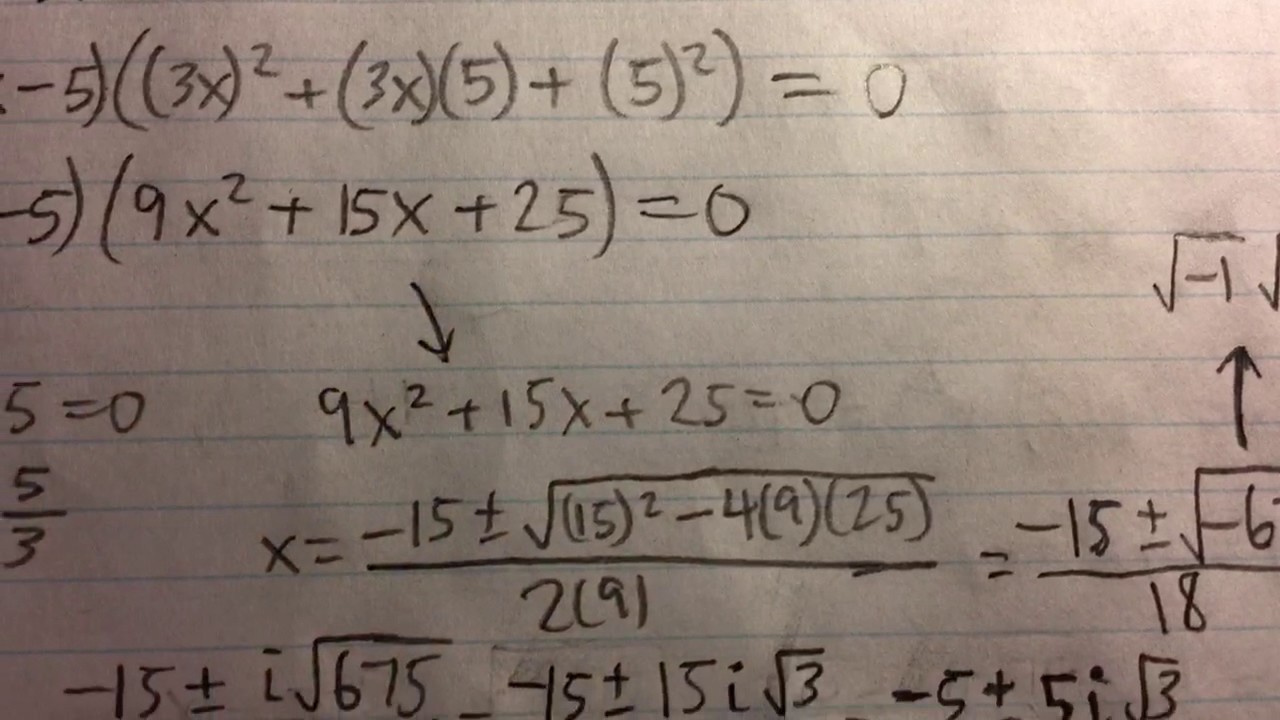 -5)((3x)² + (3x)(5) + (5)²) = 0
-5)(9x² + 15x + 25) = 0
√-1 √
5 = 0 9x² + 15x + 25 = 0
5/3 x = (-15 ± √((15)² - 4(9)(25)))/(2(9)) = (-15 ± √-6)/18
-15 ± i√675 -15 ± 15i√3 -5 ± 5i√3